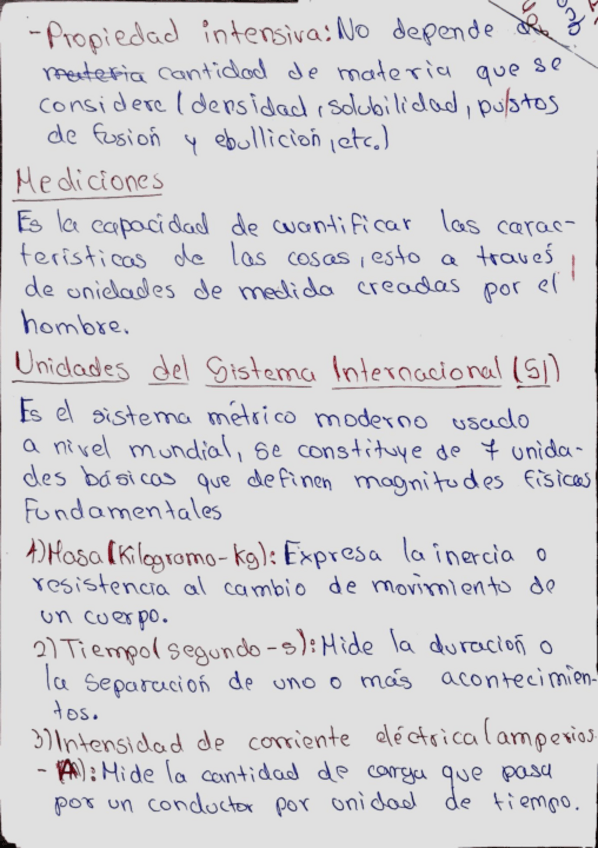 -Propiedad intensiva: No depende de
materia cantidad de materia que se
considere (densidad, solubilidad, puntos
de fusión y ebullición, etc.)
Mediciones
Es la capacidad de cuantificar las carac-
terísticas de las cosas, esto a través
de unidades de medida creadas por el
hombre.
Unidades del Sistema Internacional (SI)
Es el sistema métrico moderno usado
a nivel mundial, se constituye de 7 unida-
des básicas que definen magnitudes físicas
fundamentales
1) Masa (Kilogramo-kg): Expresa la inercia o
resistencia al cambio de movimiento de
un cuerpo.
2) Tiempo (segundo-s): Mide la duración o
la separación de uno o más acontecimien-
tos.
3) Intensidad de corriente eléctrica (amperios
- A): Mide la cantidad de carga que pasa
por un conductor por unidad de tiempo.